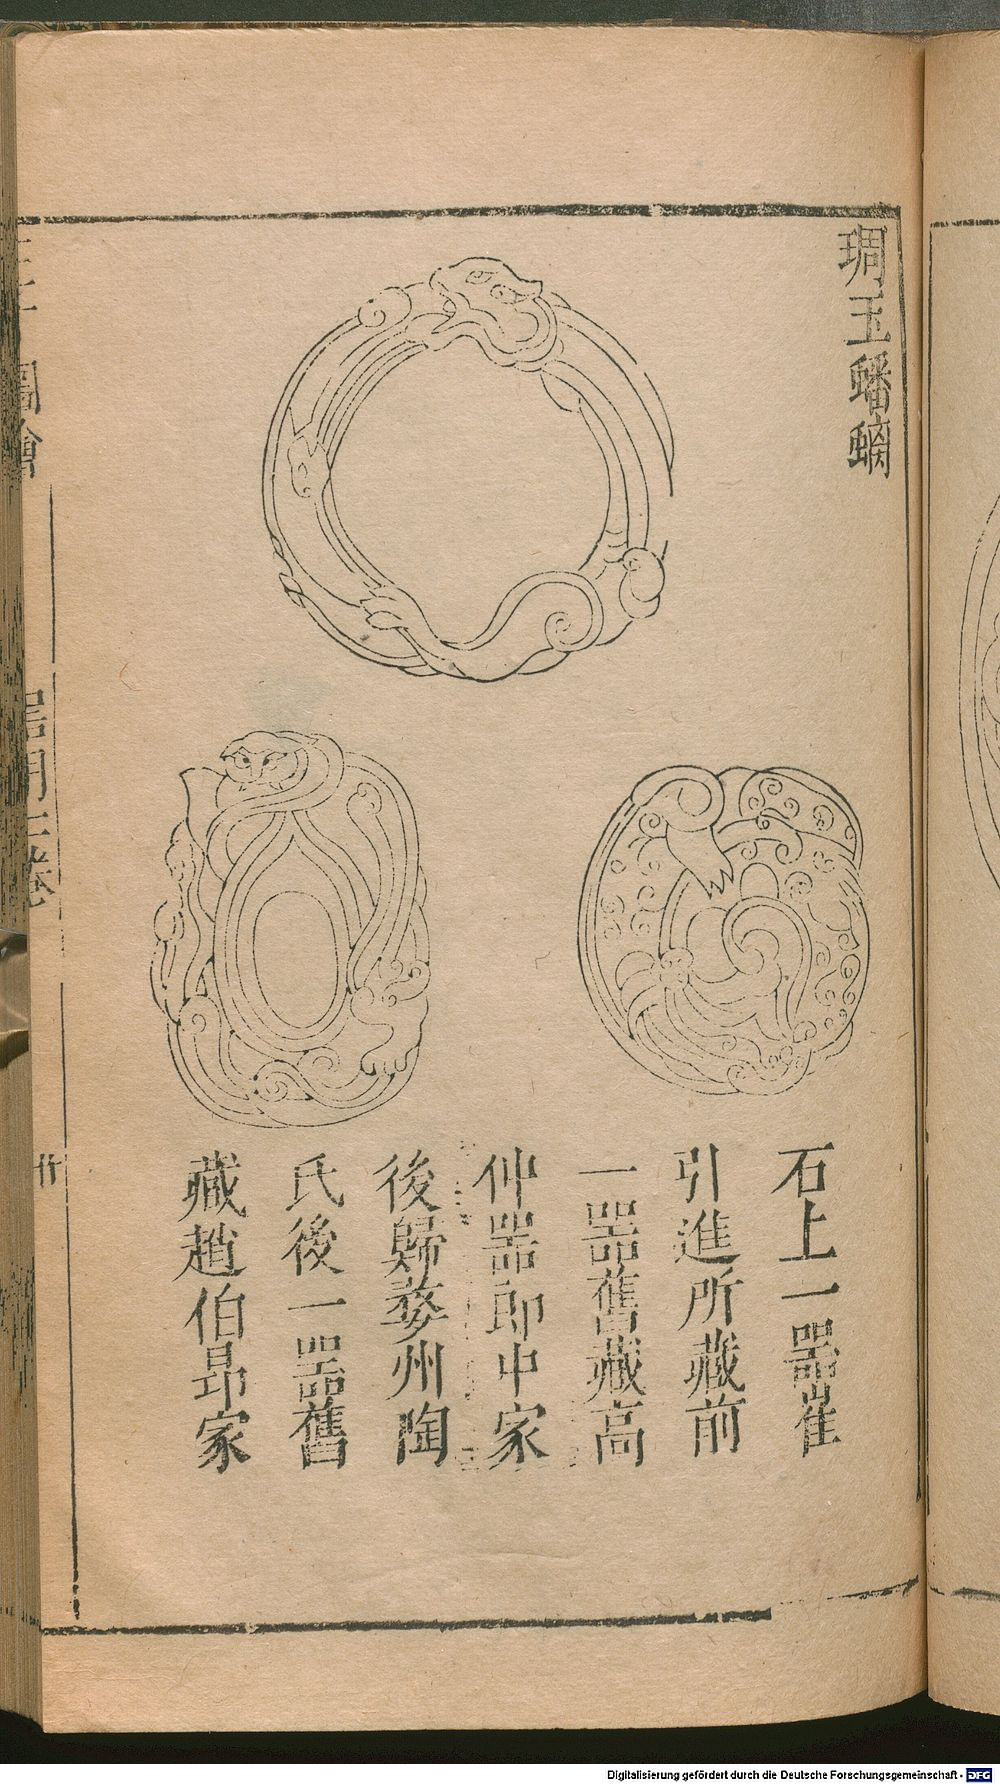 琱玉蟠螭
石上一器崔
引進所藏前
一器舊藏高
仲器郎中家
後歸婺州陶
氏後一器舊
藏趙伯昻家
圖會
Digitalisierung gefördert durch die Deutsche Forschungsgemeinschaft - DFG